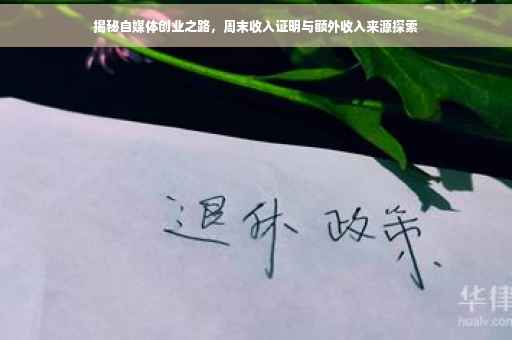 揭秘自媒体创业之路，周末收入证明与额外收入来源探索
退休 政策
华律
hualv.com